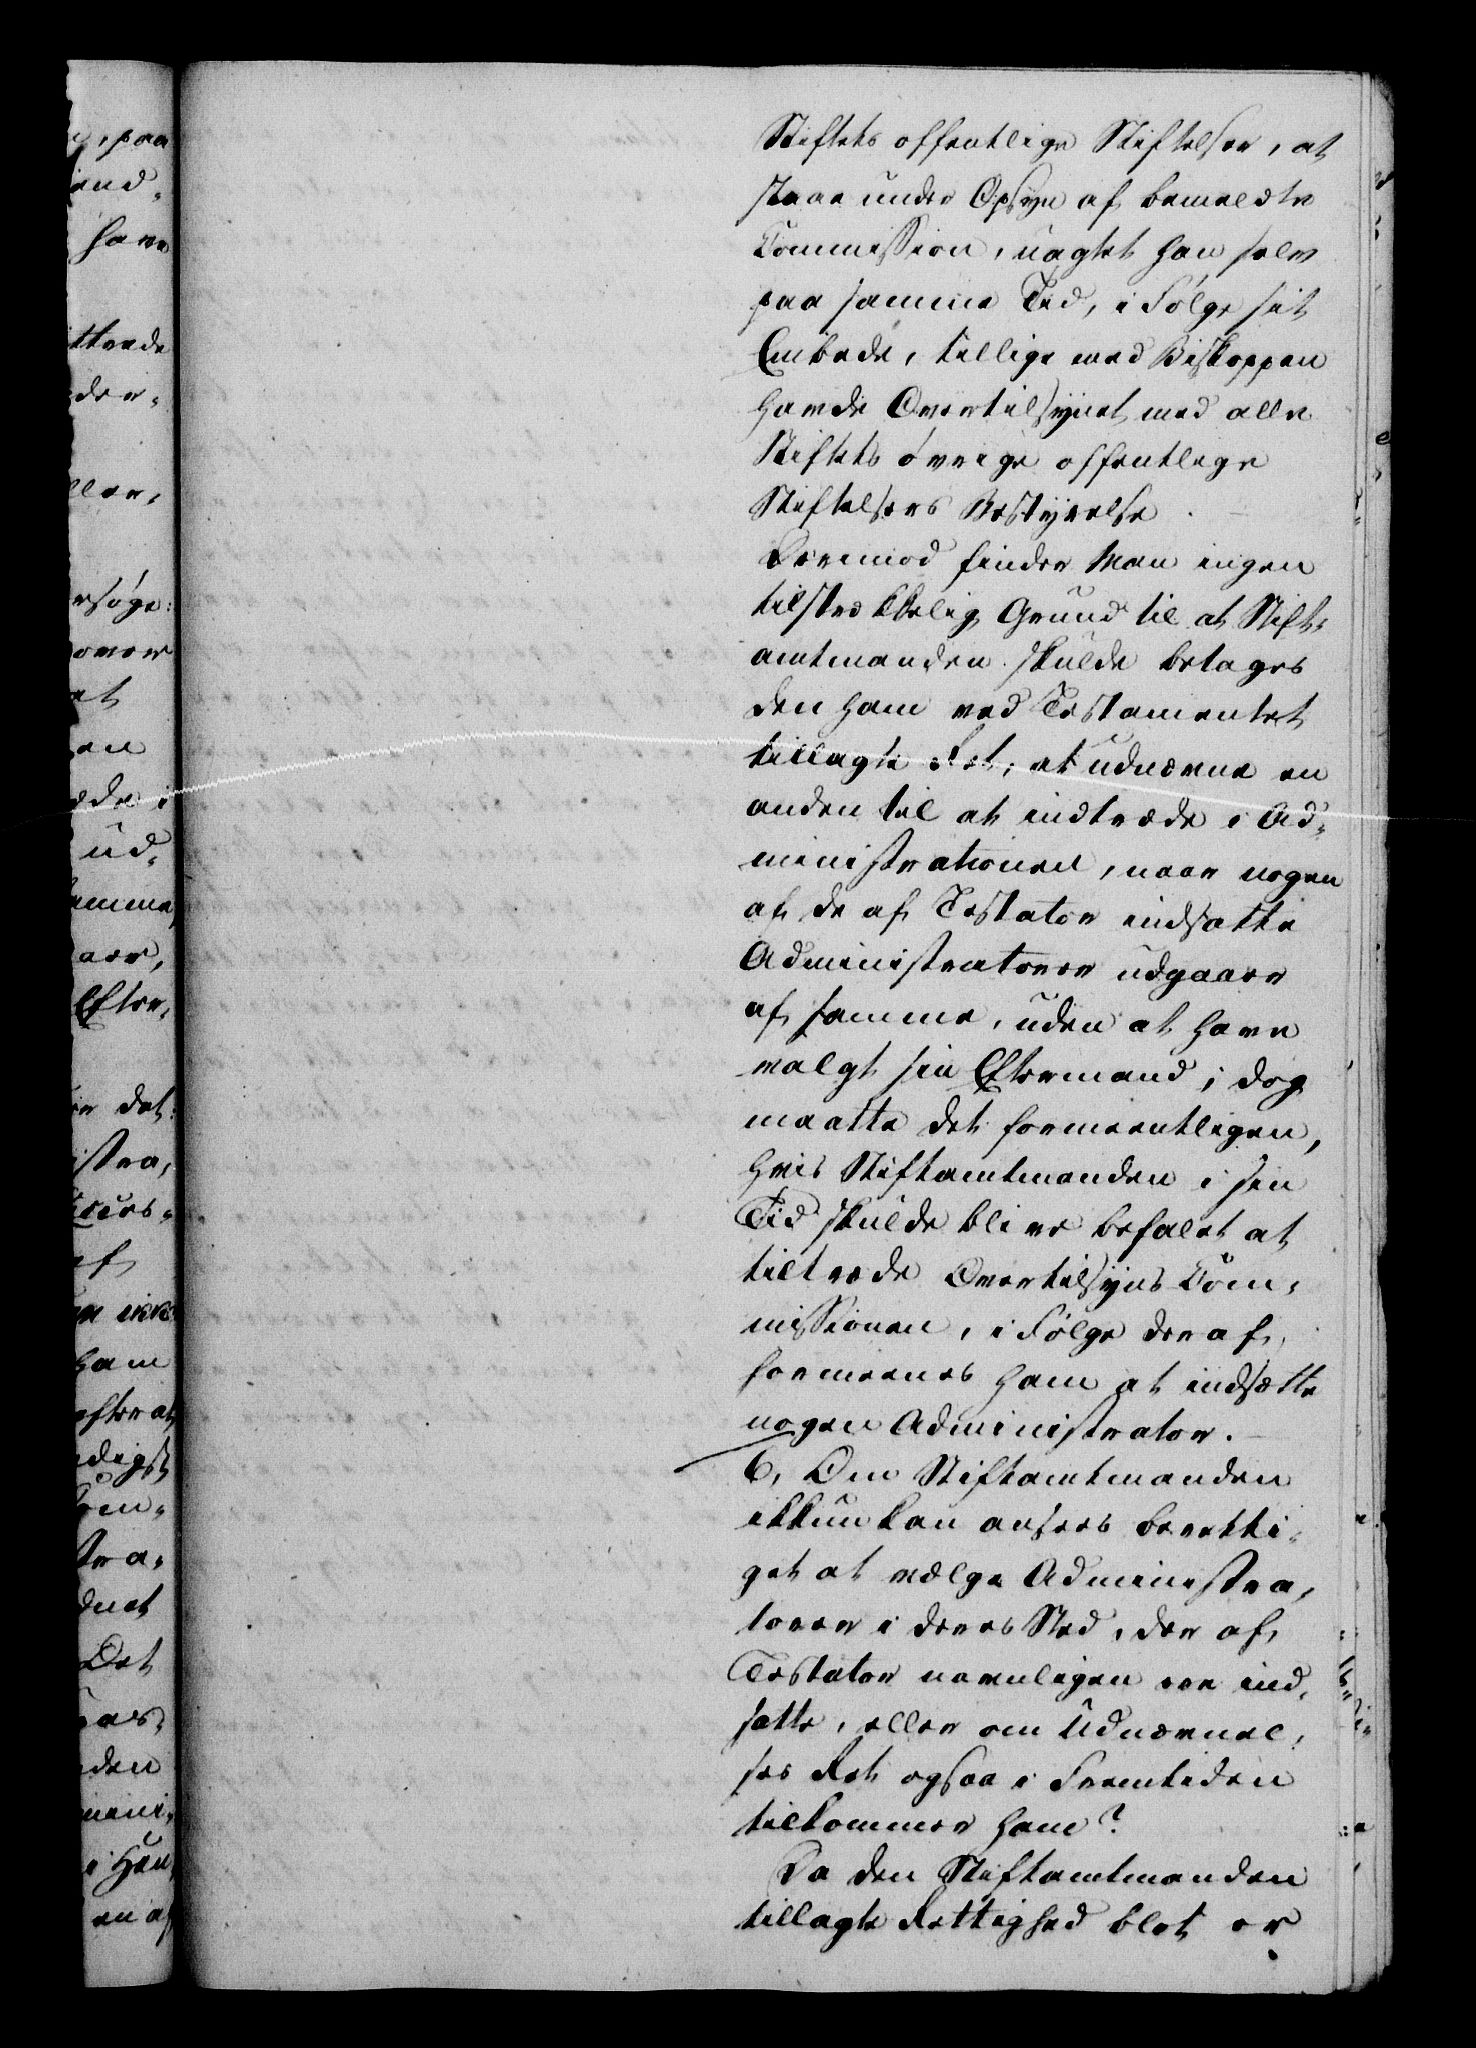 Stiftets offentlige Stiftelser, at
staae under Opsyn af bemeldte
Commission, uagtet han selv
paa samme Tid, i Følge sit
Embede, tillige med Biskoppen
havde Overtilsynet med alle
Stiftets øvrige offentlige
Stiftelsers Bestyrelse.
Derimod finder Man ingen
tilstrækkelig Grund til at Stift-
amtmanden skulde betages
den ham ved Testamentet
tillagte Ret, at udnævne en
anden til at indtræde i Ad-
ministrationen, naar nogen
af de af Testator indsatte
Administratorer udgaaer
af samme, uden at have
valgt sin Eftermand; dog
maatte det formeentligen,
hvis Stiftamtmanden i sin
Tid skulde blive befalet at
tiltræde Overtilsyns Com-
missionen, i Følge deraf,
formeenes ham at indsætte
nogen Administrator.
6, Om Stiftamtmanden
ikkun kan ansees beretti-
get at vælge Administra-
torer i deres Sted, der af
Testator navnligen ere ind-
satte, eller om Udnævnel-
ses Ret ogsaa i Fremtiden
tilkommer ham?
Da den Stiftamtmanden
tillagte Rettighed blot er